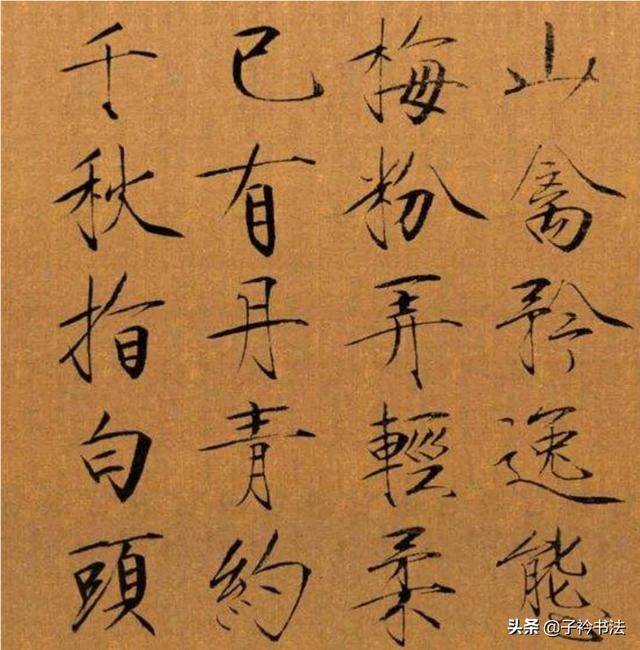 山禽矜逸態
梅粉弄輕柔
已有丹青約
千秋指白頭
头条 @子衿书法